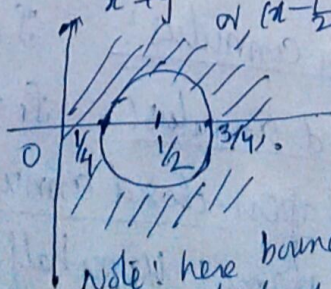 or (x-1/2
0 1/4 1/2 3/4
Note: here boun